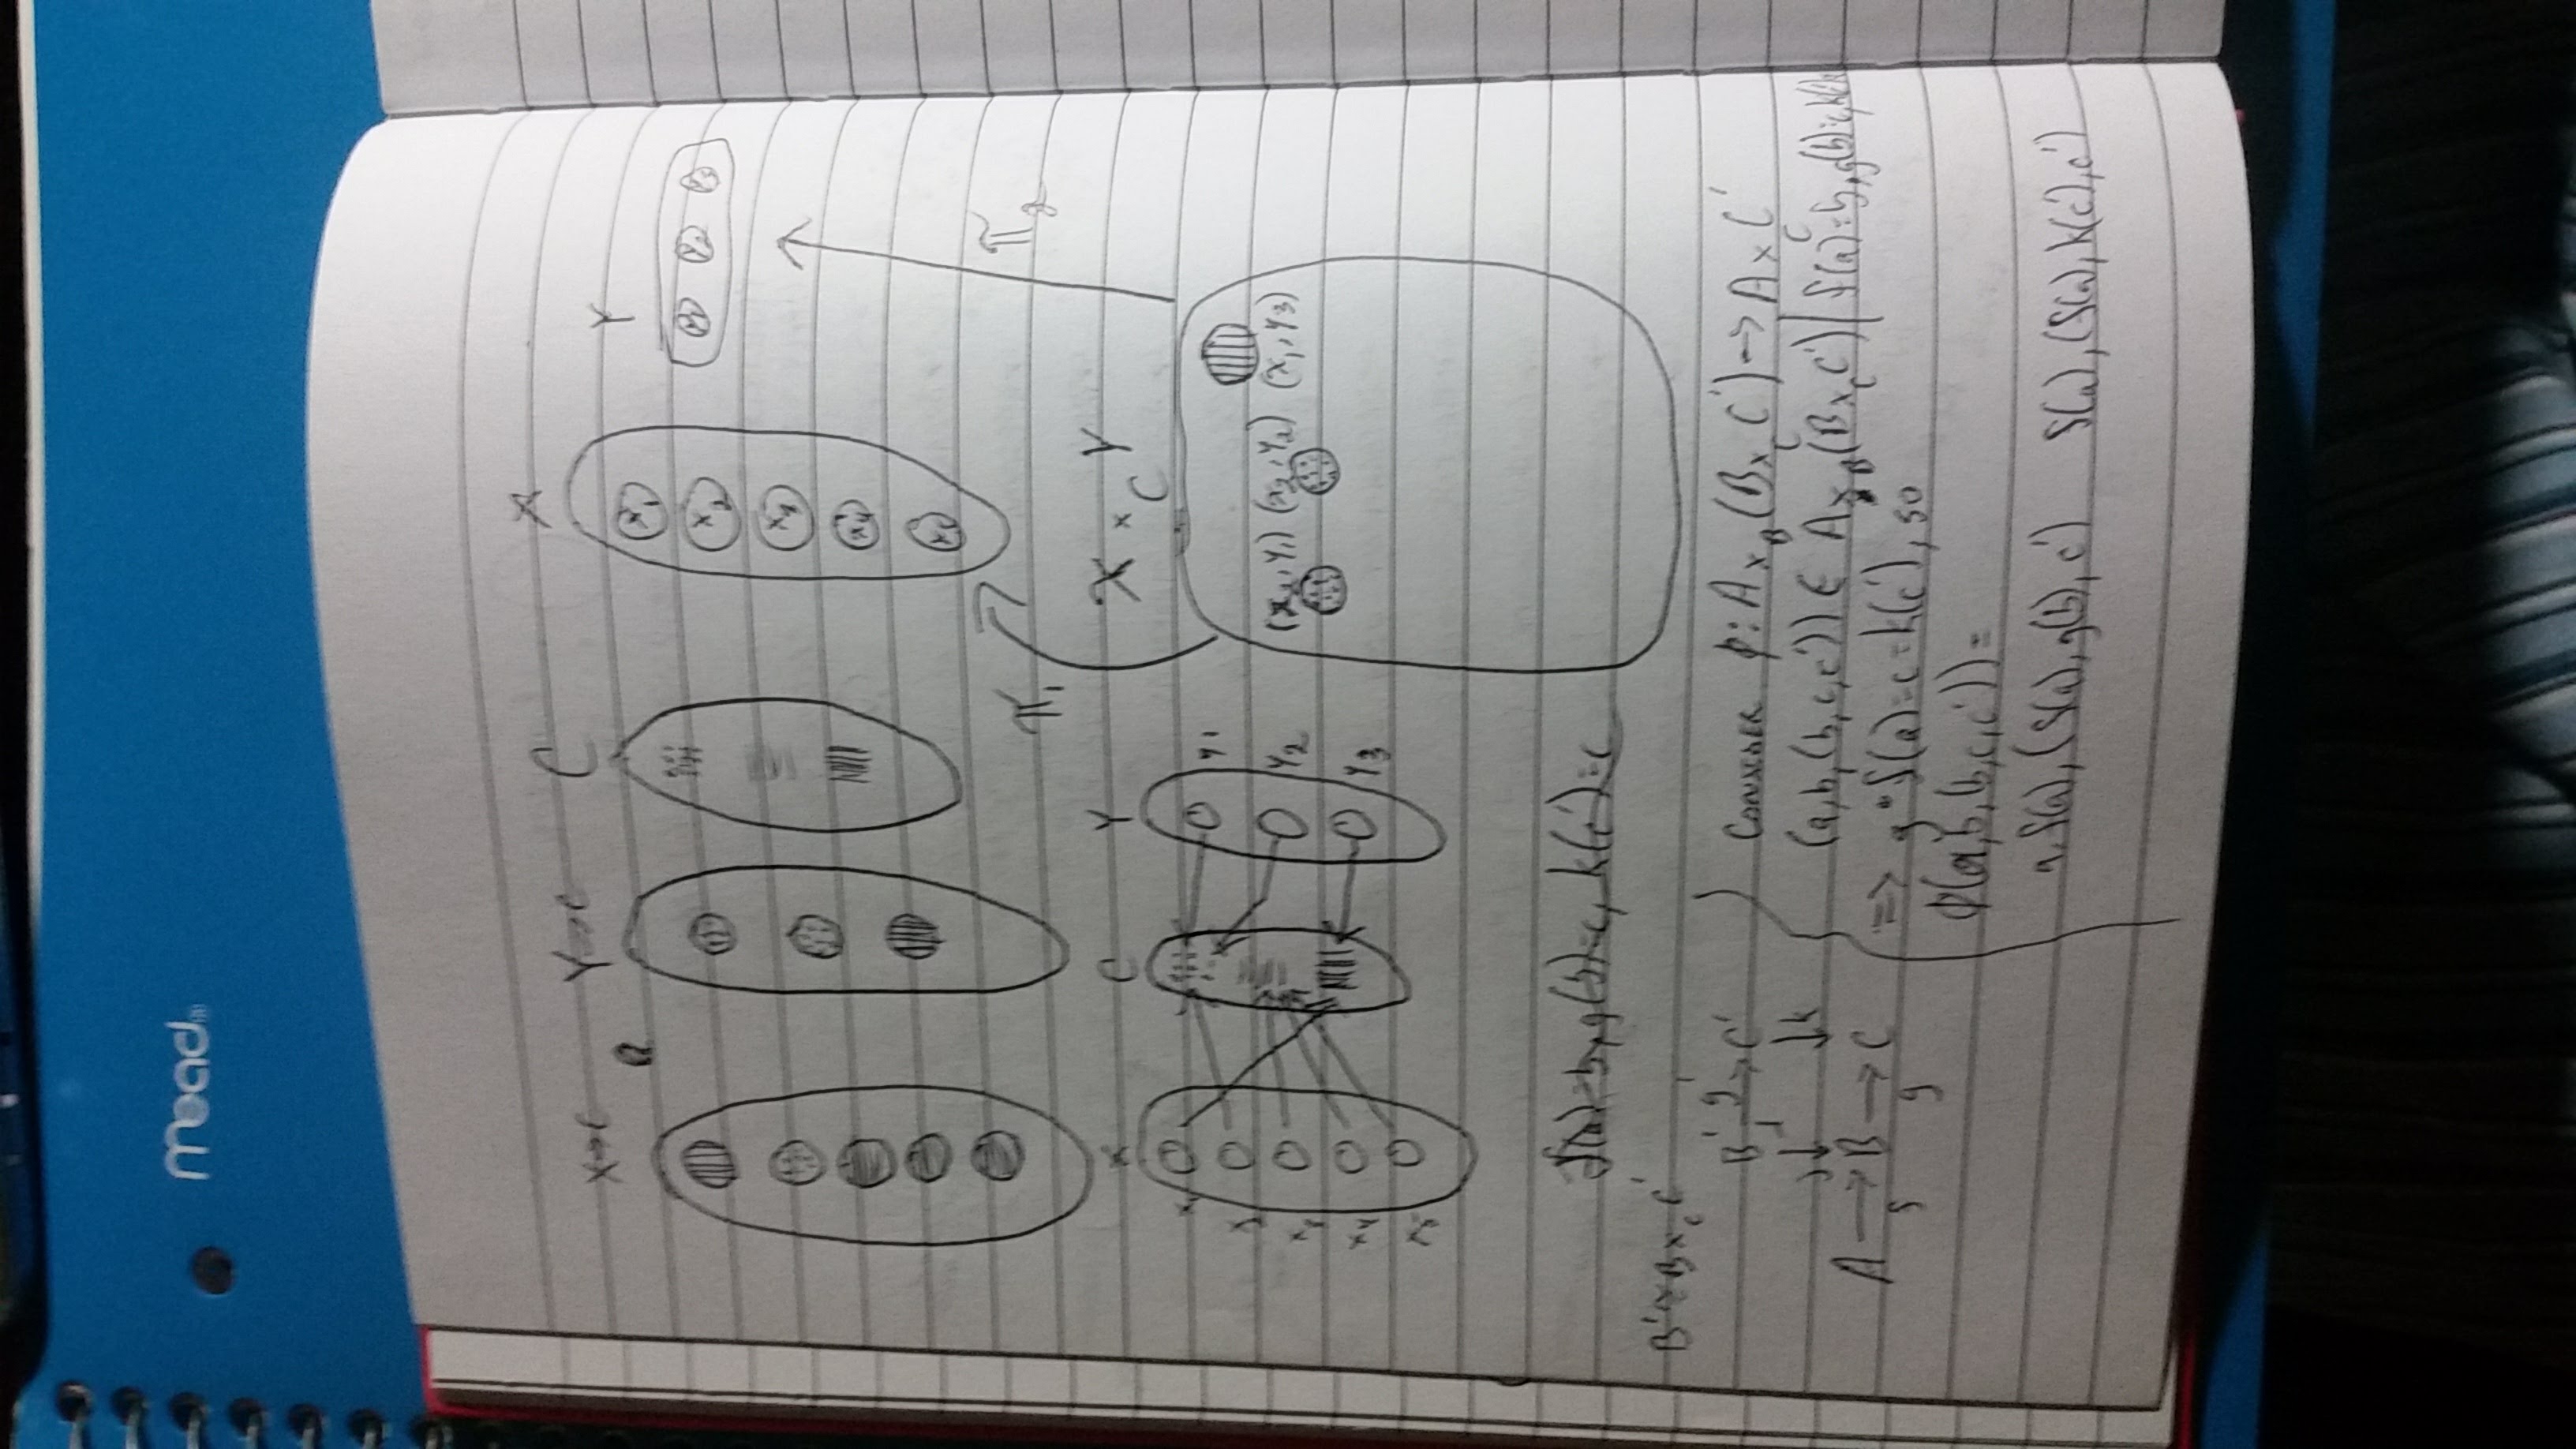 mead
X→C
Y→C
C
X
Y
x₁
x₂
x₃
x₄
x₅
y₁ y₂ y₃
π₁
π₂
X C Y
x₁
x₂
x₃
x₄
x₅
y₁
y₂
y₃
X ×_C Y
(x₂, y₁) (x₂, y₂) (x₁, y₃)
f(a)=b, g(b)=c, k(c')=c
B' ≅ B ×_C C'
B' g' → C'
j ↓ ↓ k
A → B → C
f g
CONSIDER φ: A ×_B (B ×_C C') → A ×_C C'
(a, b, (b, c, c')) ∈ A ×_B (B ×_C C') | f(a)=b, g(b)=c, k(c')=c
=> g∘f(a)=c=k(c'), so
φ(a, b, (b, c, c')) =
a, f(a), (f(a), g(b), c') f(a), (f(a), k(c'), c')